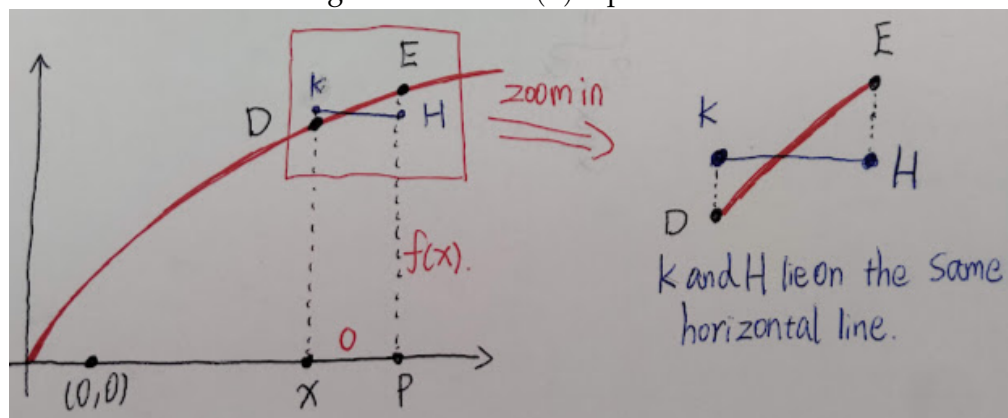 E
K
D
H
zoom in
f(x).
O
(0,0)
x
P
E
K
H
D
K and H lie on the same
horizontal line.